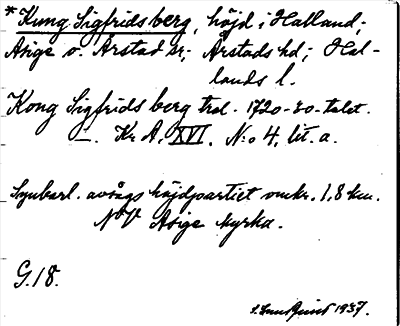 * Kung Sigfrids berg, höjd i Halland;
Asige o. Årstad sn; Årstads hd; Hal-
lands l.
Kong Sigfrids berg trol. 1720-30-talet.
—. Kr. A. XVI. N:o 4, lit. a.
Synbarl. avsågs höjdpartiet omkr. 1,8 km.
NV Asige kyrka.
G. 18.
1937.